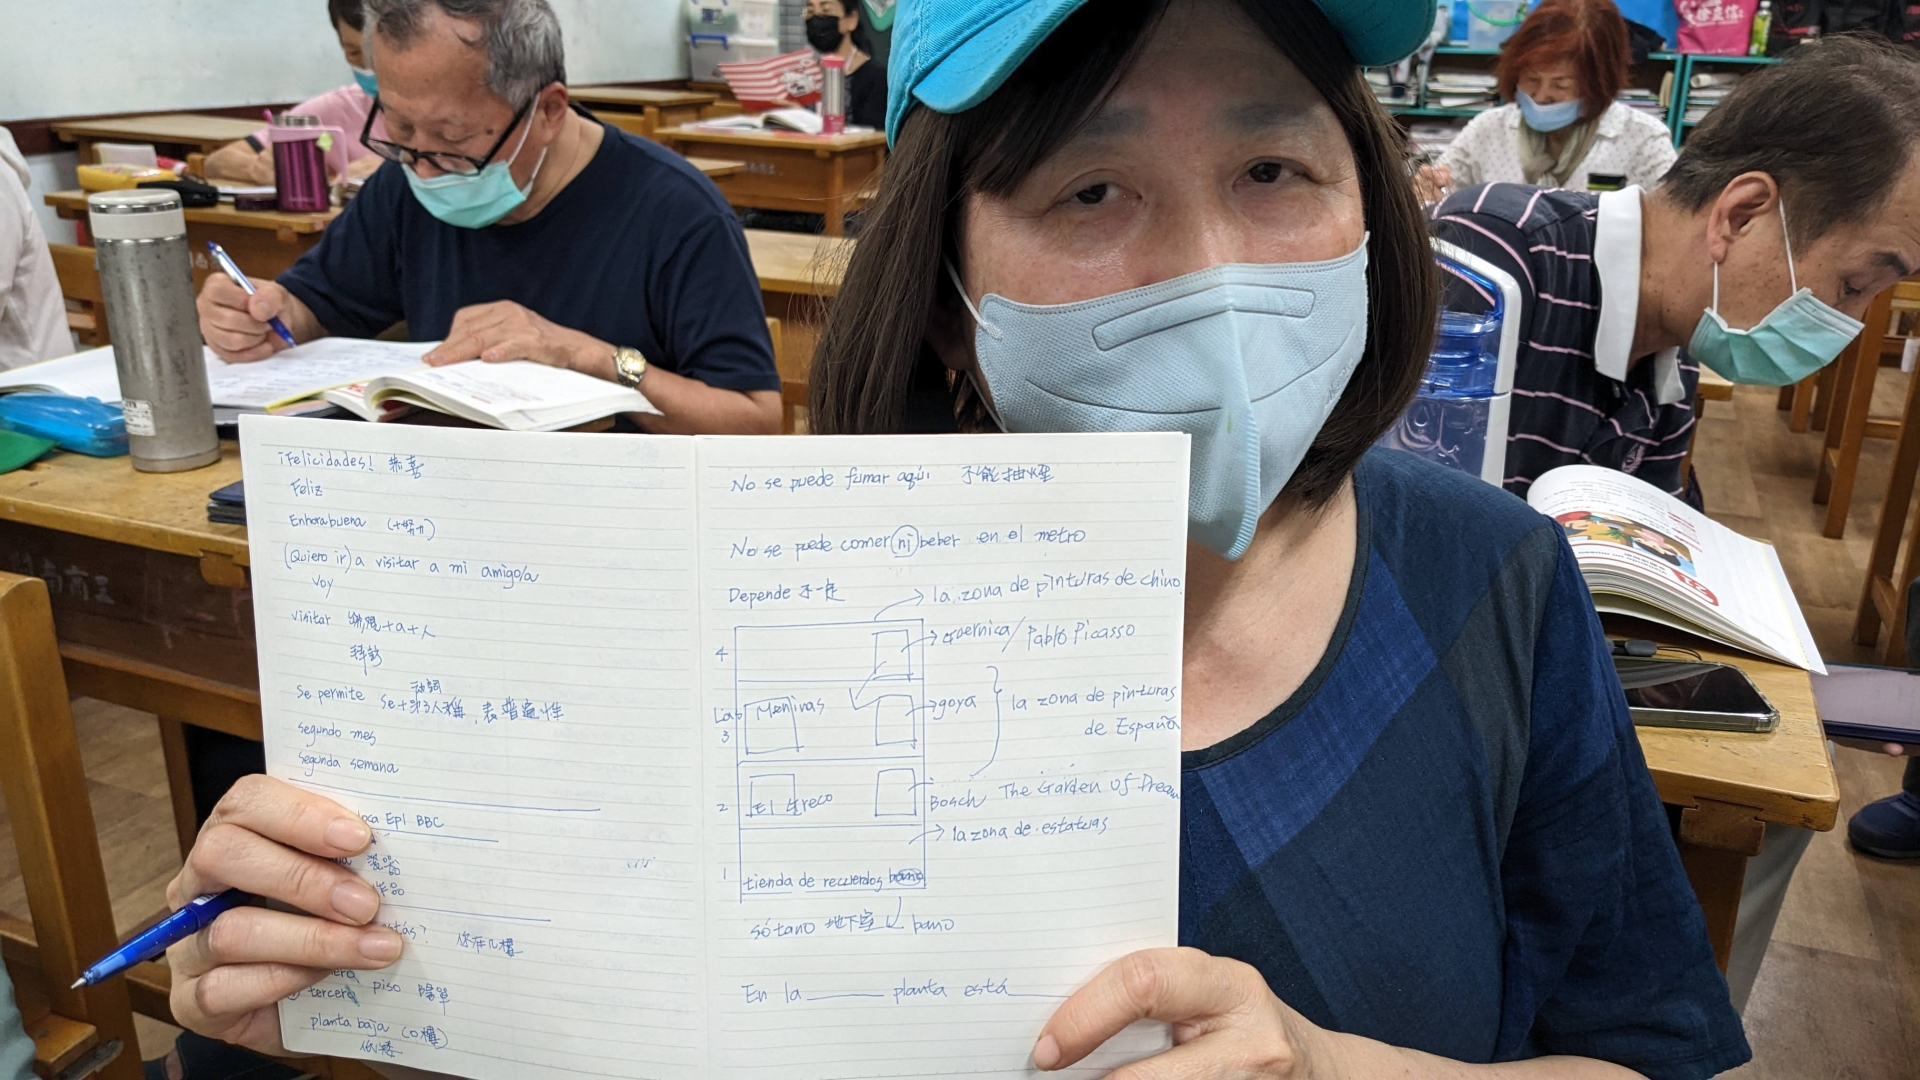 ¡Felicidades! 恭喜
Feliz
Enhorabuena (+努力)
(Quiero ir) a visitar a mi amigo/a
Voy
visitar +a+人
拜訪
动詞
Se permite Se+第3人稱, 表普遍性
segundo mes
segunda semana
Epl BBC
瓷器
作品
estás? 你在几樓
tercero piso 陽單
planta baja (0樓)
No se puede fumar aquí 不能抽煙
No se puede comer ni beber en el metro
Depende 不一定
la zona de pinturas de chino
4
Guernica / Pablo Picasso
Las Meninas
3
goya
la zona de pinturas
de España
2
El Greco
Bosch The Garden of Dream
la zona de estatuas
1
tienda de recuerdos baño
sótano 地下室 bano
En la ______ planta está